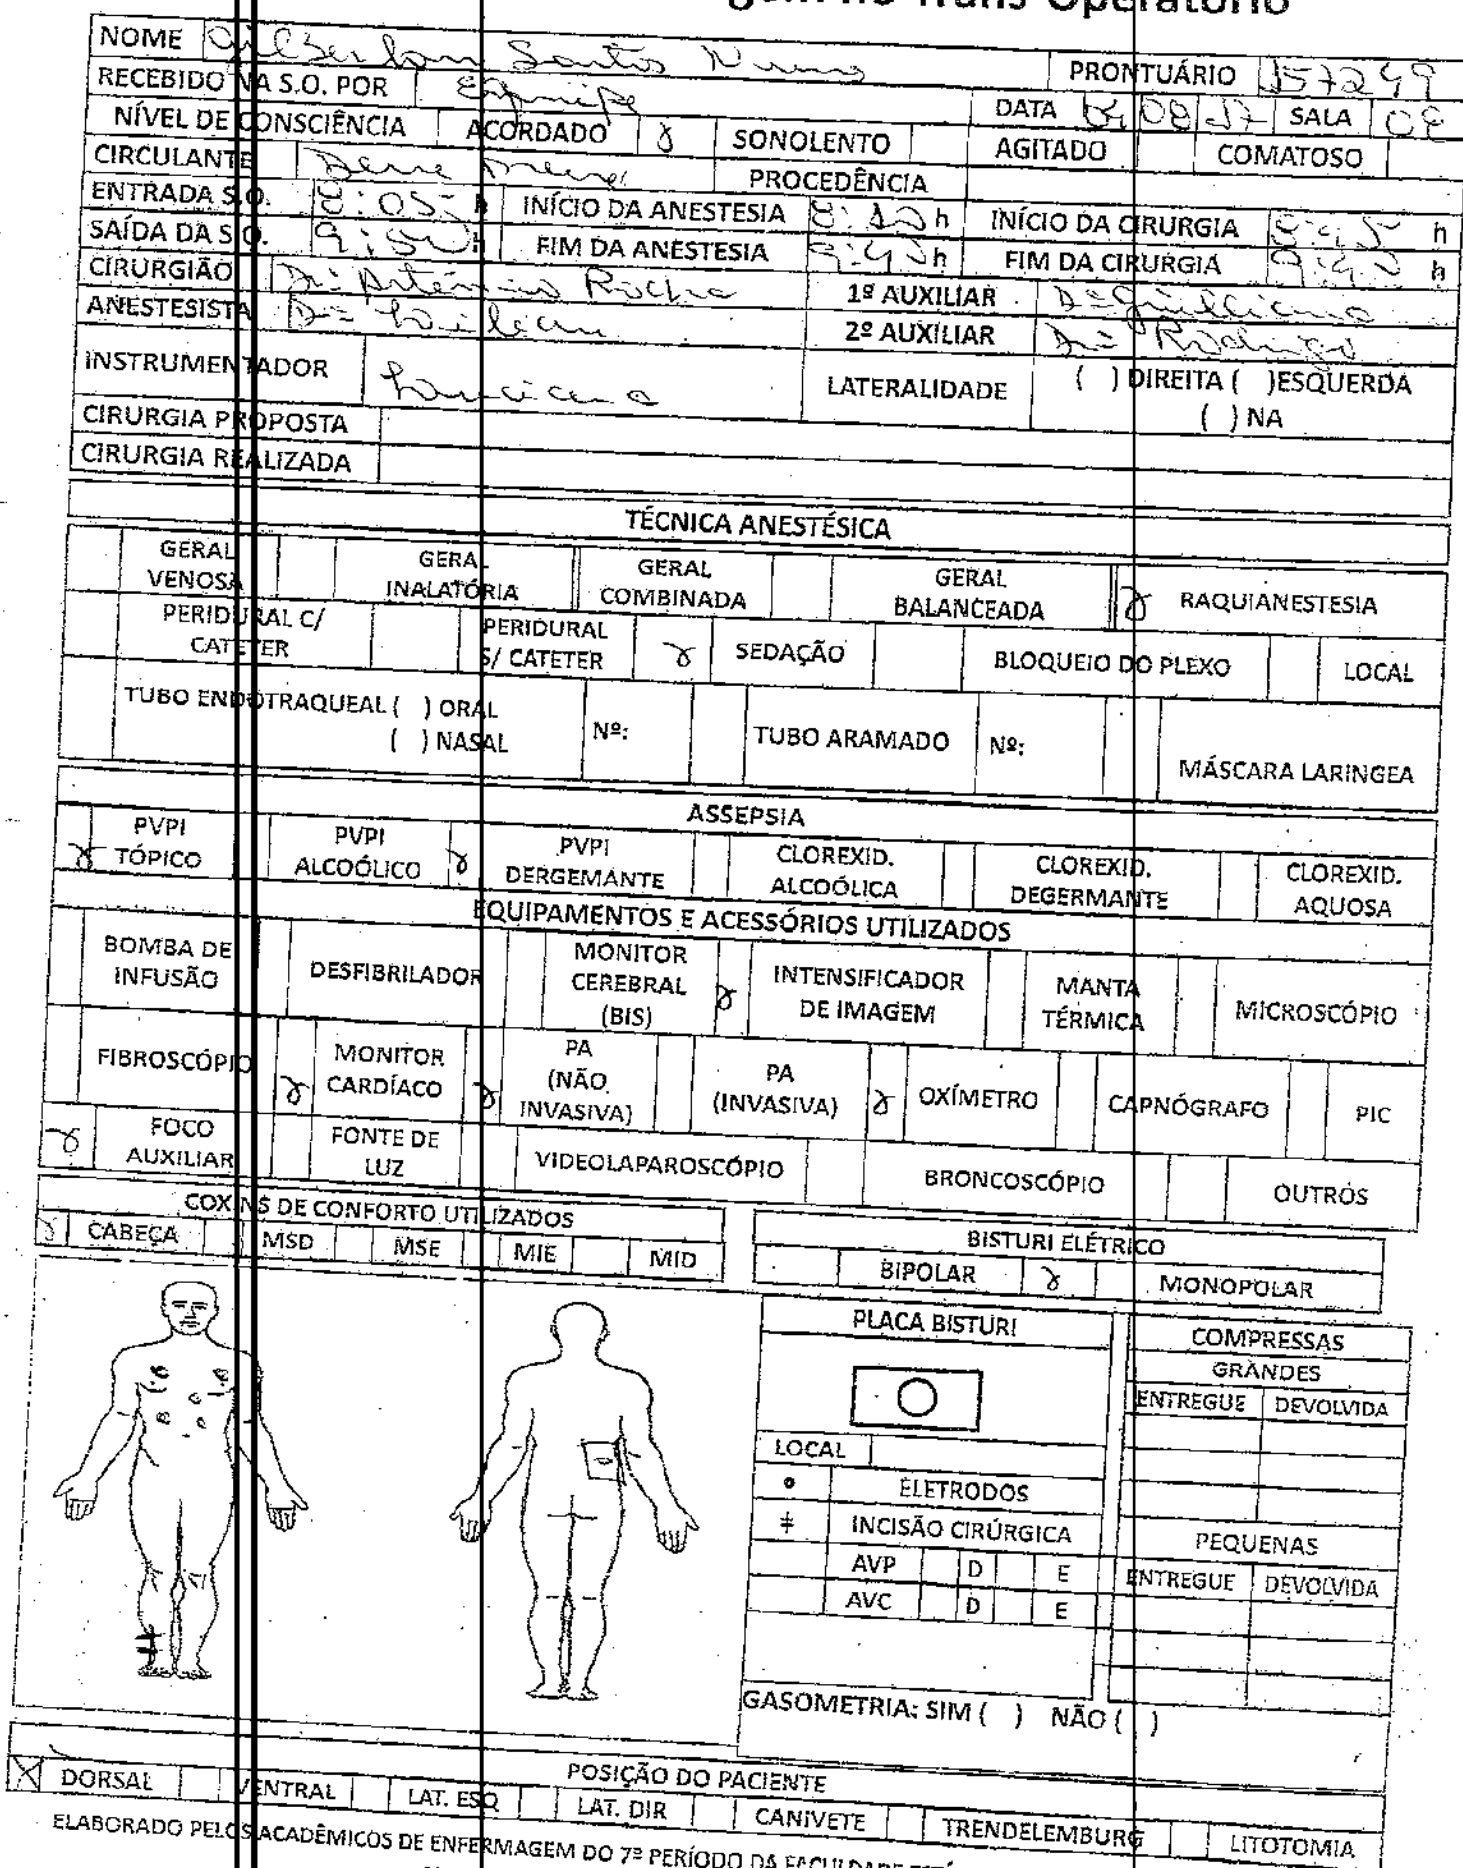 Trans Operatório
NOME Santos PRONTUÁRIO 157249
RECEBIDO NA S.O. POR Equipe DATA 08 17 SALA
NÍVEL DE CONSCIÊNCIA ACORDADO SONOLENTO AGITADO COMATOSO
CIRCULANTE PROCEDÊNCIA
ENTRADA S.O. 8:05 h INÍCIO DA ANESTESIA h INÍCIO DA CIRURGIA h
SAÍDA DA S.O. h FIM DA ANESTESIA h FIM DA CIRURGIA h
CIRURGIÃO Rocha 1º AUXILIAR
ANESTESISTA 2º AUXILIAR Rodrigo
INSTRUMENTADOR Luciana LATERALIDADE ( ) DIREITA ( )ESQUERDA
( ) NA
CIRURGIA PROPOSTA
CIRURGIA REALIZADA
TÉCNICA ANESTÉSICA
GERAL VENOSA GERAL INALATÓRIA GERAL COMBINADA GERAL BALANCEADA RAQUIANESTESIA
PERIDURAL C/ CATETER PERIDURAL S/ CATETER SEDAÇÃO BLOQUEIO DO PLEXO LOCAL
TUBO ENDOTRAQUEAL ( ) ORAL Nº: TUBO ARAMADO Nº: MÁSCARA LARINGEA
( ) NASAL
ASSEPSIA
PVPI TÓPICO PVPI ALCOÓLICO PVPI DERGEMANTE CLOREXID. ALCOÓLICA CLOREXID. DEGERMANTE CLOREXID. AQUOSA
EQUIPAMENTOS E ACESSÓRIOS UTILIZADOS
BOMBA DE INFUSÃO DESFIBRILADOR MONITOR CEREBRAL (BIS) INTENSIFICADOR DE IMAGEM MANTA TÉRMICA MICROSCÓPIO
FIBROSCÓPIO MONITOR CARDÍACO PA (NÃO INVASIVA) PA (INVASIVA) OXÍMETRO CAPNÓGRAFO PIC
FOCO AUXILIAR FONTE DE LUZ VIDEOLAPAROSCÓPIO BRONCOSCÓPIO OUTROS
COXINS DE CONFORTO UTILIZADOS
CABEÇA MSD MSE MIE MID
BISTURI ELÉTRICO
BIPOLAR MONOPOLAR
PLACA BISTURI
LOCAL
ELETRODOS
INCISÃO CIRÚRGICA
AVP D E
AVC D E
COMPRESSAS
GRANDES
ENTREGUE DEVOLVIDA
PEQUENAS
ENTREGUE DEVOLVIDA
GASOMETRIA: SIM ( ) NÃO ( )
POSIÇÃO DO PACIENTE
X DORSAL VENTRAL LAT. ESQ LAT. DIR CANIVETE TRENDELEMBURG LITOTOMIA
ELABORADO PELOS ACADÊMICOS DE ENFERMAGEM DO 7º PERÍODO DA FACULDADE